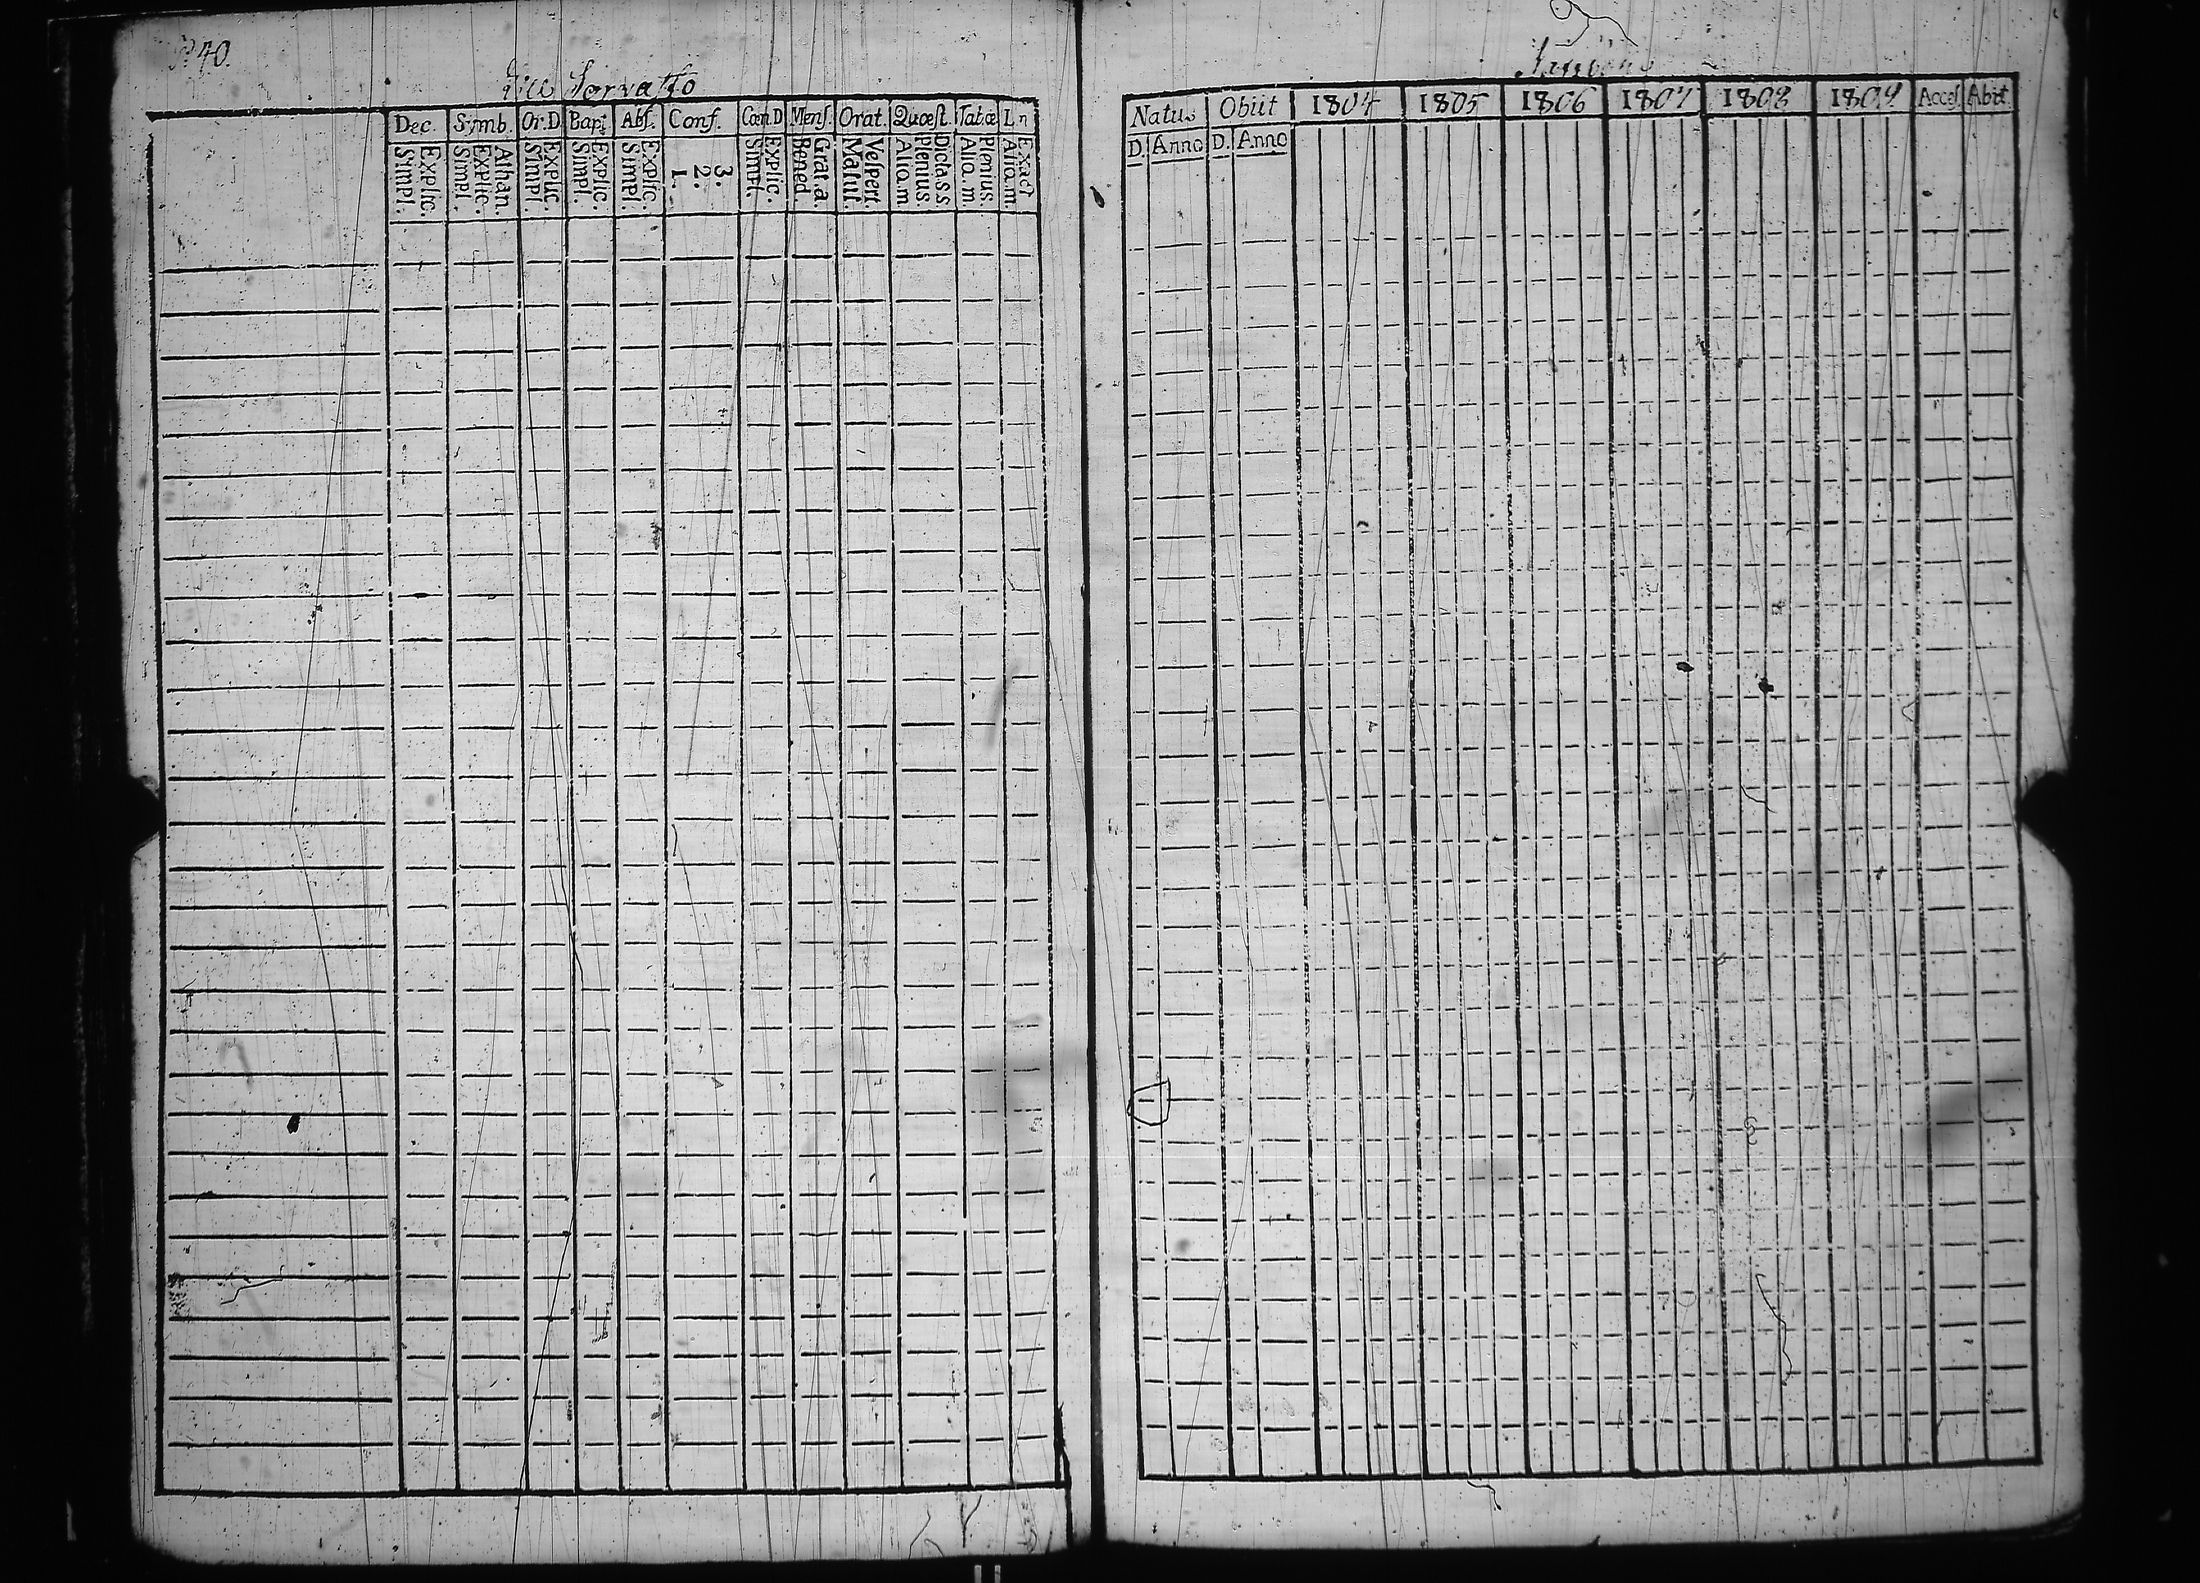 340.
Dec. Symb. Or.D. Bapt. Abſ. Conf. Cœn.D Menſ. Orat. Quæſt. Tab.œ L.n
Explic. Simpl. Athan. Explic. Simpl. Explic. Simpl. Explic. Simpl. Explic. Simpl. 3. 2. 1. Explic. Simpl. Grat.a Bened. Veſpert. Matut. Dicta.s.s Plenius. Aliq.m Plenius. Aliq.m Exact Aliq.m
Natus Obiit 1804 1805 1806 1807 1808 1809 Acceſ. Abiit
D. Anno D. Anno